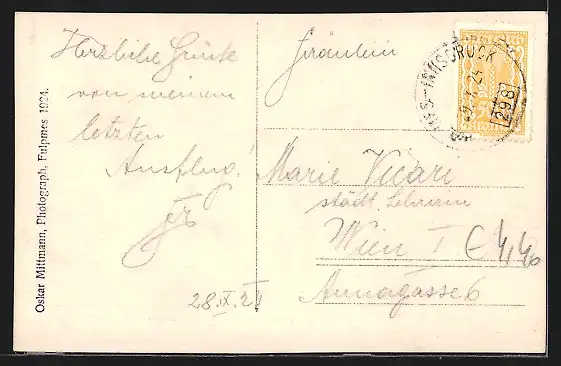 Herzliche Grüße
von meinem
letzten
Ausflug!
28.IX.24
Fräulein
Marie Vicari
städt. Lehrerin
Wien I
Annagasse 6
€ 4,40
INNSBRUCK
298
Oskar Mittmann, Photograph, Fulpmes 1924.